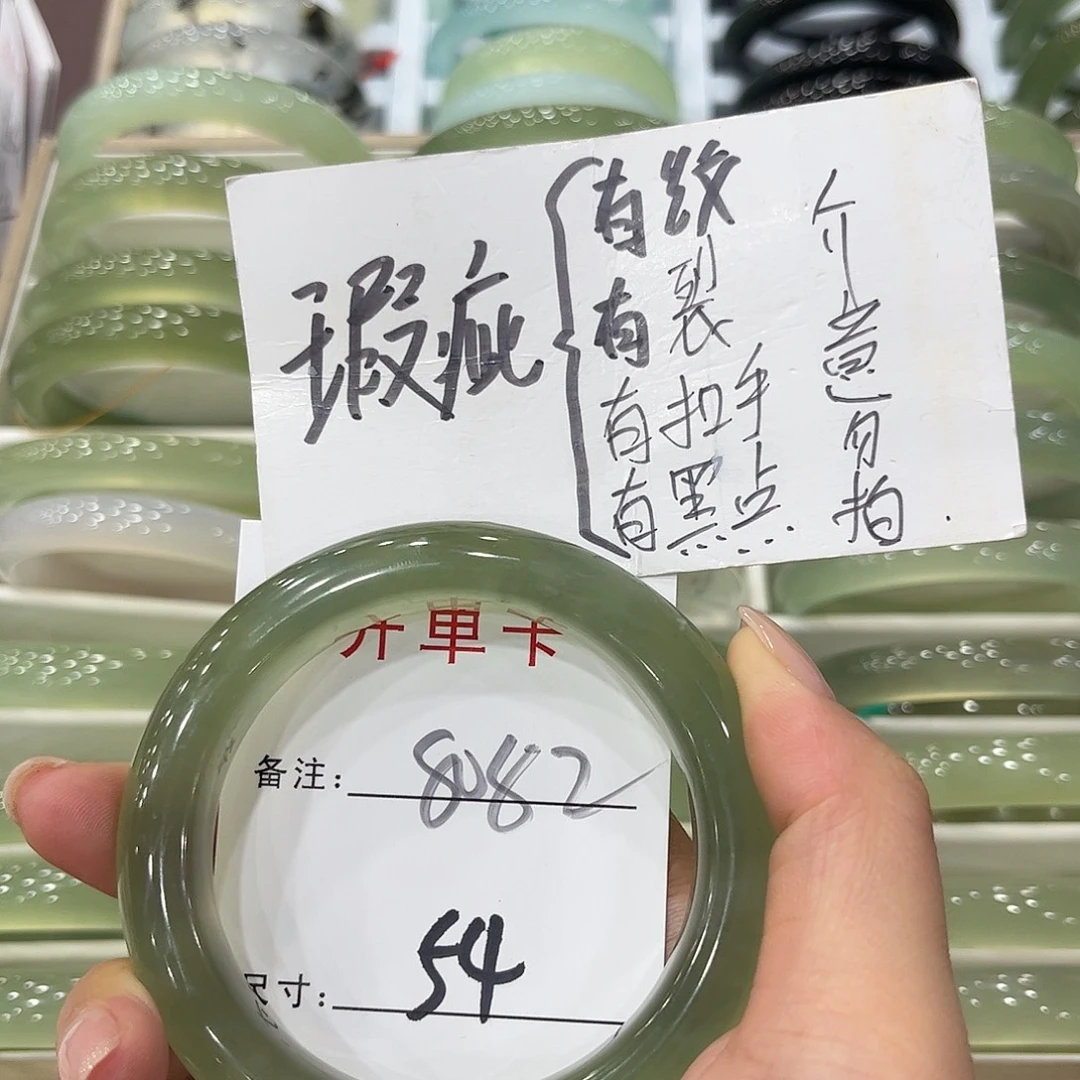 瑕疵
有纹
有裂
有扣手
有黑点.
介意勿拍.
开单卡
备注: 8082
尺寸: 54